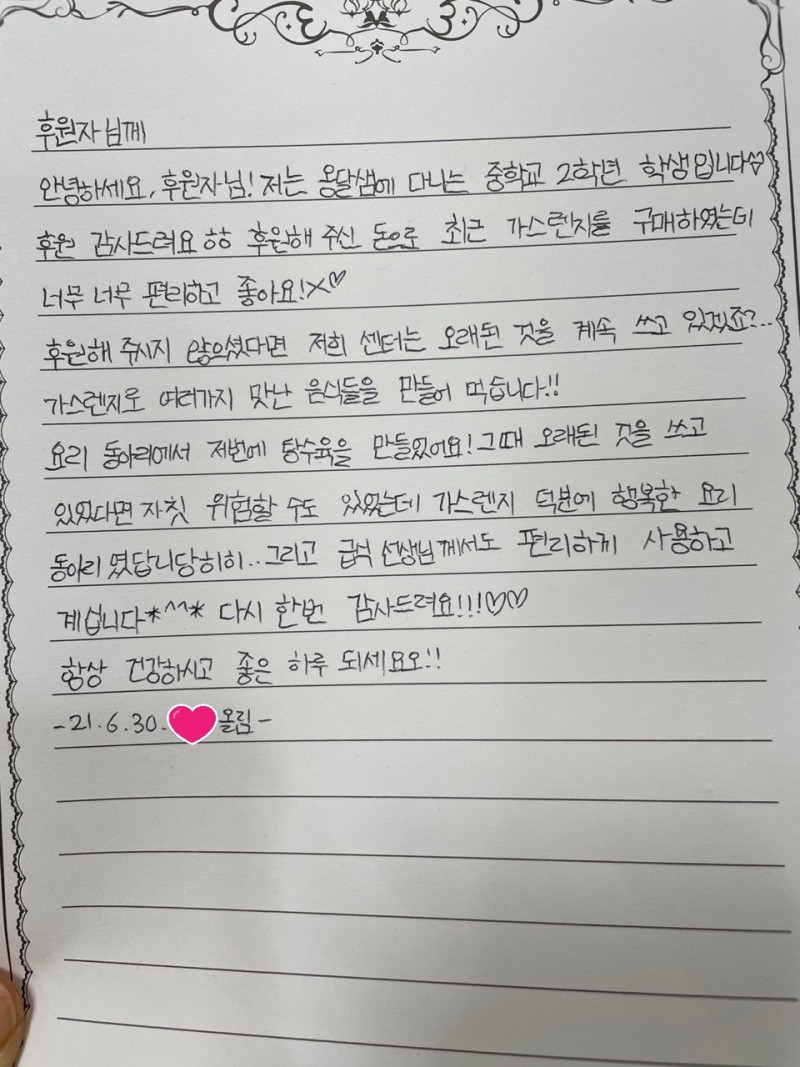 후원자님께
안녕하세요, 후원자님! 저는 옹달샘에 다니는 중학교 2학년 학생입니다♡
후원 감사드려요ㅎㅎ 후원해 주신 돈으로 최근 가스렌지를 구매하였는데
너무 너무 편리하고 좋아요!X♡
후원해 주시지 않으셨다면 저희 센터는 오래된 것을 계속 쓰고 있겠죠?...
가스렌지로 여러가지 맛난 음식들을 만들어 먹습니다!!
요리 동아리에서 저번에 탕수육을 만들었어요! 그때 오래된 것을 쓰고
있었다면 자칫 위험할 수도 있었는데 가스렌지 덕분에 행복한 요리
동아리 였답니당히히.. 그리고 급식 선생님께서도 편리하게 사용하고
계십니다*^^* 다시 한번 감사드려요!!!♡♡
항상 건강하시고 좋은 하루 되세요오!!
-21.6.30. 올림-